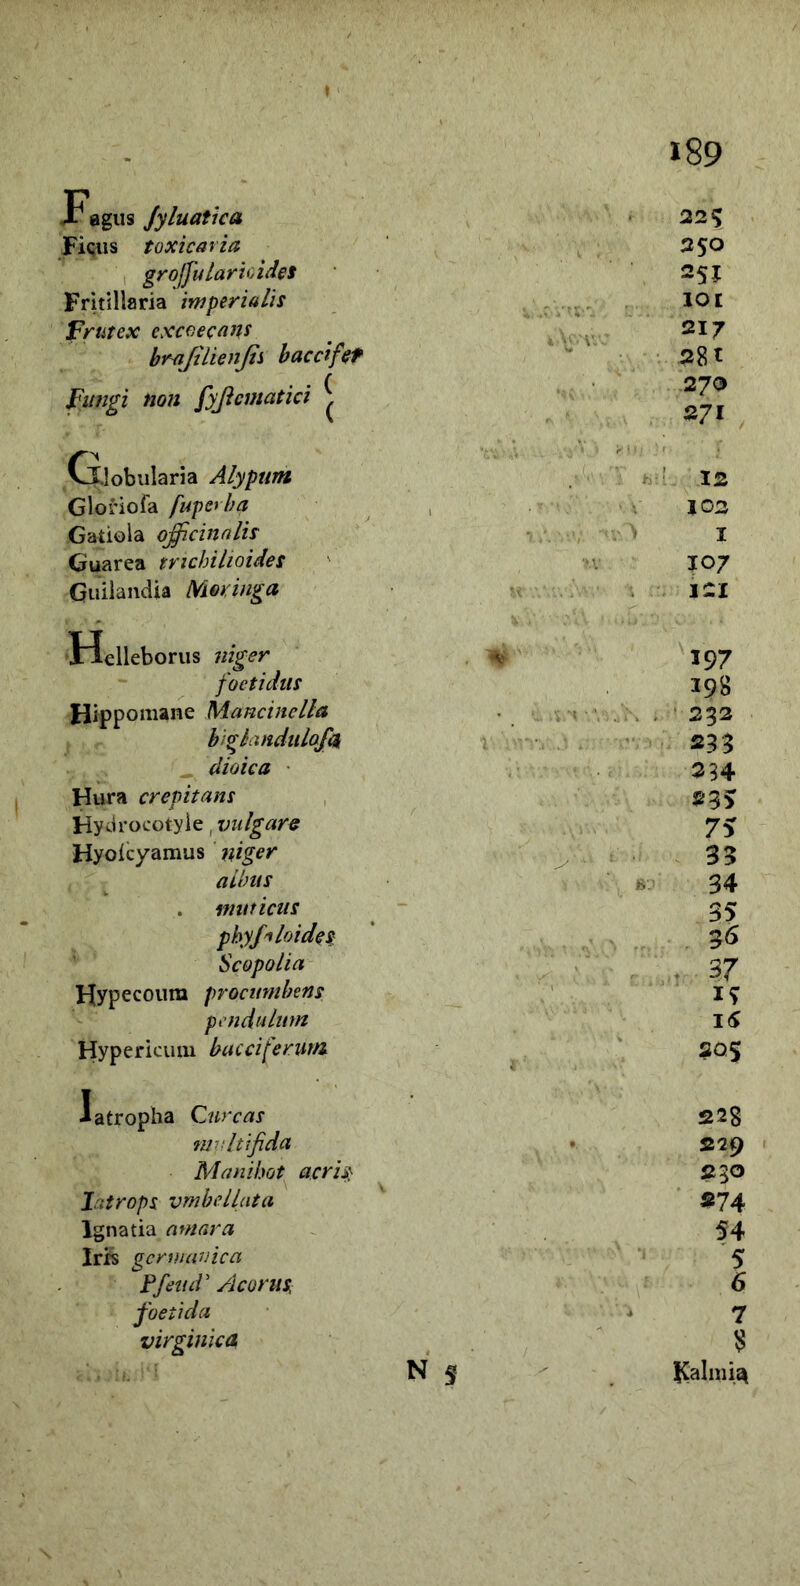 189
Fagus ſyluatica 225
Ficus toxicaria 250
groſſularioides 251
Fritillaria imperialis 101
Frutex excoecans 217
braſilienſis baccifer 281
Fungi non ſyſtematici ( 270
271
Globularia Alypum 12
Glorioſa ſuperba 102
Gatiola officinalis 1
Guarea trichilioides 107
Guilandia Moringa 121
Helleborus niger 197
foetidus 198
Hippomane Mancinella 232
biglanduloſa 233
dioica 234
Hura crepitans 235
Hydrocotyle vulgare 75
Hyoſcyamus niger 33
albus 34
muticus 35
phyſaloides 36
Scopolia 37
Hypecoum procumbens 15
pendulum 16
Hypericum bacciferum 205
Iatropha Curcas 228
multifida 229
Manihot acris 230
Iatrops vmbellata 274
Ignatia amara 54
Iris germanica 5
Pſeud' Acorus 6
foetida 7
virginica 8
N 5 Kalmia